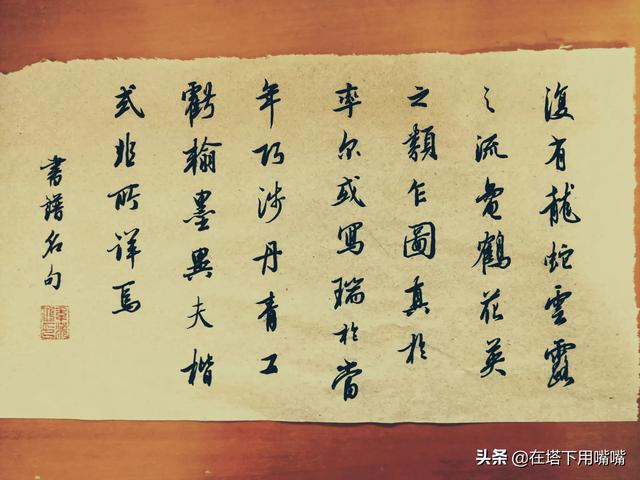 復有龍蛇雲露
之流龜鶴花英
之類乍圖真於
率尔或寫瑞於當
年巧涉丹青工
虧翰墨異夫楷
式非所詳焉
書譜名句
头条 @在塔下用嘴嘴